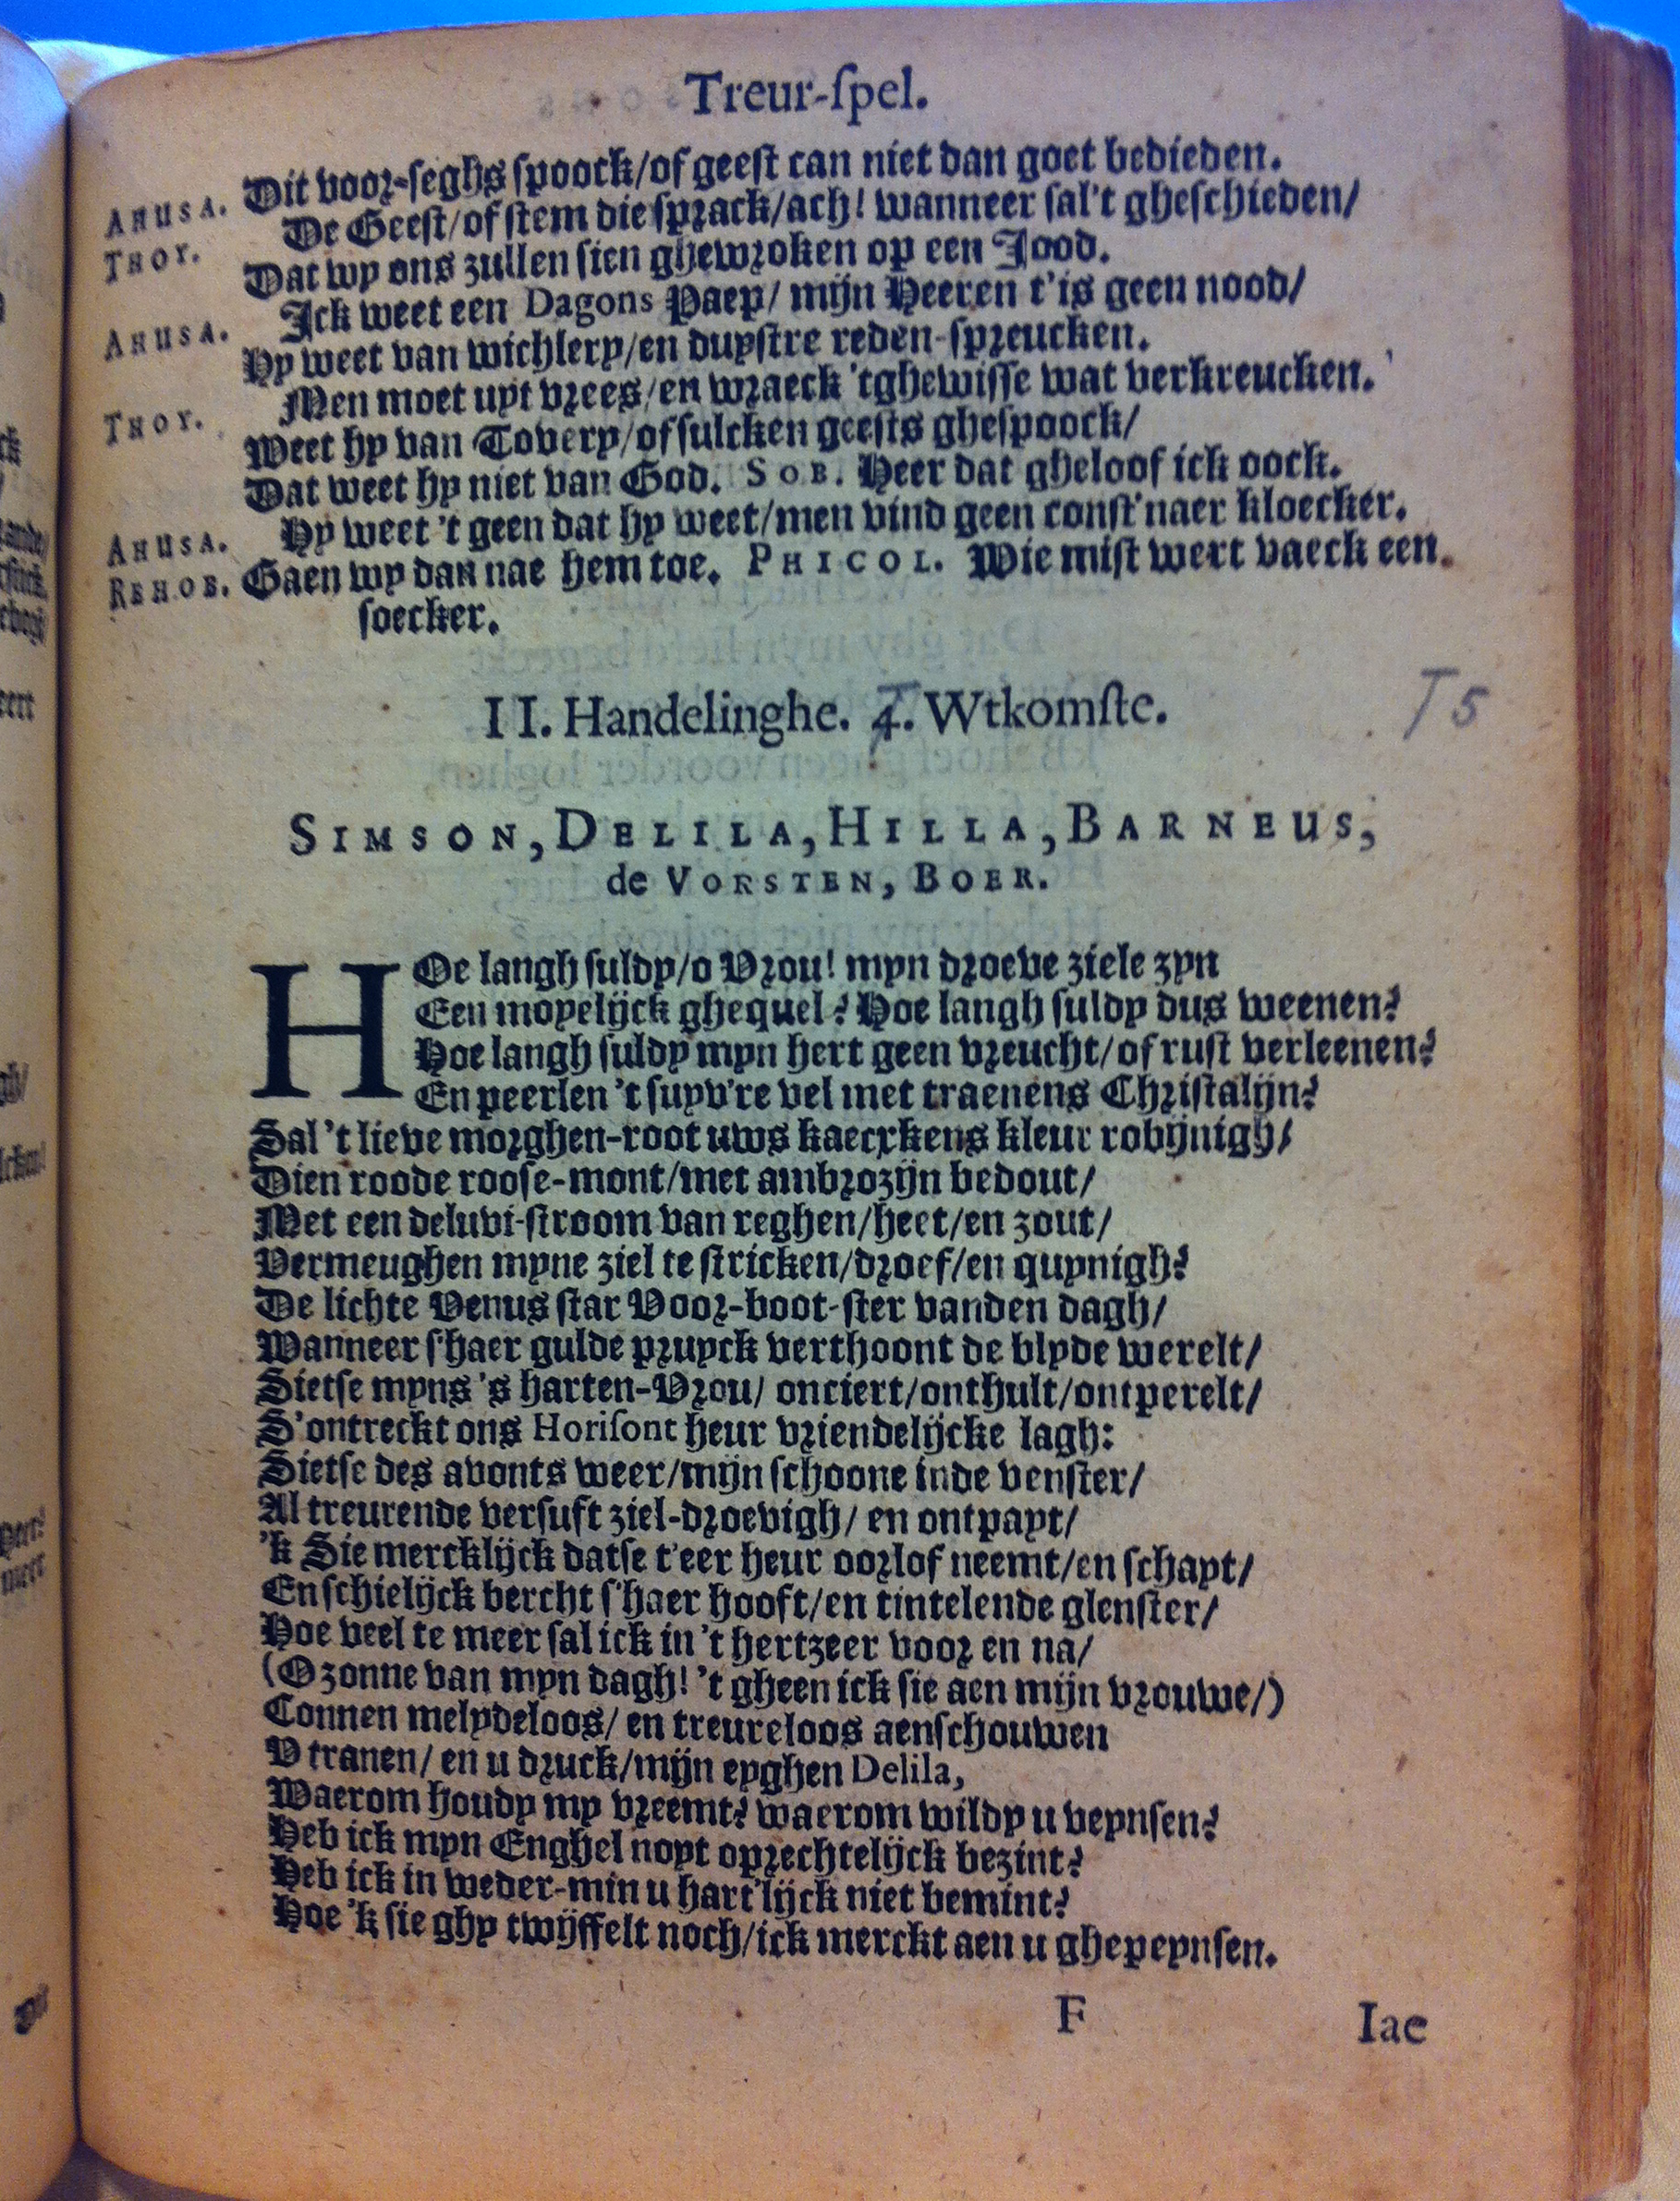 Treur-spel.
Dit voor-seghs spoock/of geest can niet dan goet bedieden.
AHUSA. De Geest/of stem die sprack/ach! wanneer sal't gheschieden/
THOY. Dat wy ons zullen sien ghewroken op een Jood.
Ick weet een Dagons Paep/ mijn Heeren t'is geen nood/
AHUSA. Hy weet van wichlery/en duystre reden-spreucken.
Men moet uyt vrees/en wraeck 'tghewisse wat verkreucken.
THOY. Weet hy van Tovery/of sulcken geests ghespoock/
Dat weet hy niet van God. SOB. Heer dat gheloof ick oock.
AHUSA. Hy weet 't geen dat hy weet/men vind geen const'naer kloecker.
REHOB. Gaen wy dan nae hem toe. PHICOL. Wie mist wert vaeck een
soecker.
II. Handelinghe. 4. Wtkomste.
T 5
SIMSON, DELILA, HILLA, BARNEUS,
de VORSTEN, BOER.
HOe langh suldy/o Vrou! myn droeve ziele zyn
Een moyelijck ghequel? Hoe langh suldy dus weenen?
Hoe langh suldy myn hert geen vreucht/of rust verleenen?
En peerlen 't suyv're vel met traenens Christalijn?
Sal 't lieve morghen-root uws kaecxkens kleur robijnigh/
Dien roode roose-mont/met ambrozijn bedout/
Met een deluvi-stroom van reghen/heet/en zout/
Vermeughen myne ziel te stricken/droef/en quynigh?
De lichte Venus star Voor-boot-ster vanden dagh/
Wanneer s'haer gulde pruyck verthoont de blyde werelt/
Sietse myns 's harten-Vrou/ onciert/onthult/ontperelt/
S'ontreckt ons Horisont heur vriendelijcke lagh:
Sietse des avonts weer/mijn schoone inde venster/
Al treurende versuft ziel-droevigh/ en ontpayt/
'k Sie mercklijck datse t'eer heur oorlof neemt/en schayt/
En schielijck bercht s'haer hooft/en tintelende glenster/
Hoe veel te meer sal ick in 't hertzeer voor en na/
(O zonne van myn dagh! 't gheen ick sie aen mijn vrouwe/)
Connen melydeloos/ en treureloos aenschouwen
V tranen/ en u druck/mijn eyghen Delila,
Waerom houdy my vreemt? waerom wildy u veynsen?
Heb ick myn Enghel noyt oprechtelijck bezint?
Heb ick in weder-min u hart'lijck niet bemint?
Hoe 'k sie ghy twijffelt noch/ick merckt aen u ghepeynsen.
F
Iae